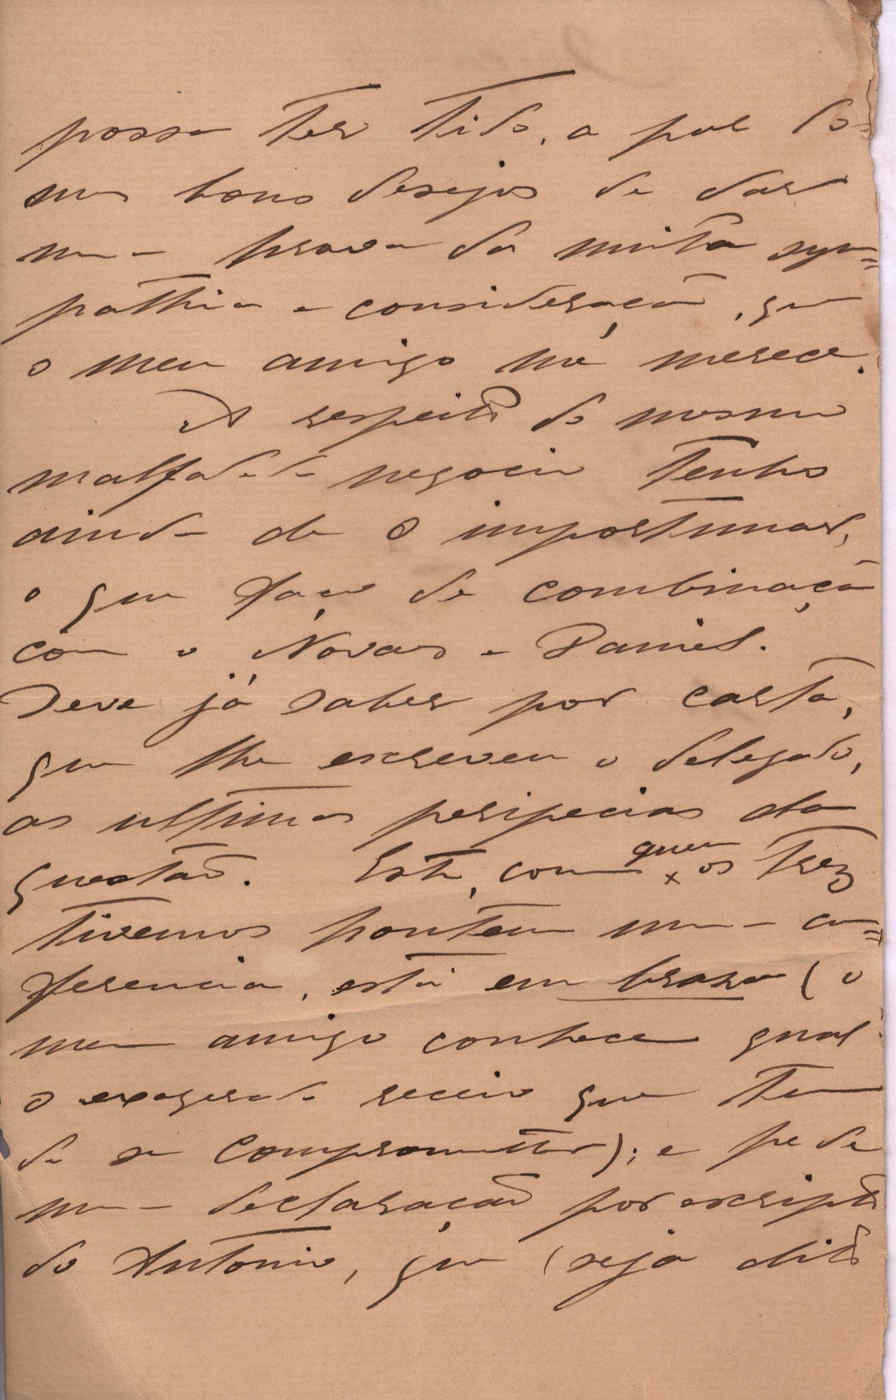 possa ter tido, a par dos
meus bons desejos de dar
uma prova da muita sym=
pathia e consideração, que
o meu amigo me merece.
A respeito do mesmo
malfadado negocio tenho
ainda de o importunar,
o que faço de combinação
com o Novaes e Daniel.
Deve já saber por carta,
que lhe escreveu o delegado,
as ultimas peripecias da
questão. Este, com quem os trez
tivemos hontem uma con=
ferencia, está em braza (o
meu amigo conhece qual
o exagerado receio que tem
de se comprometter); e pede
uma declaração por escripto
do Antonio, que (seja dito